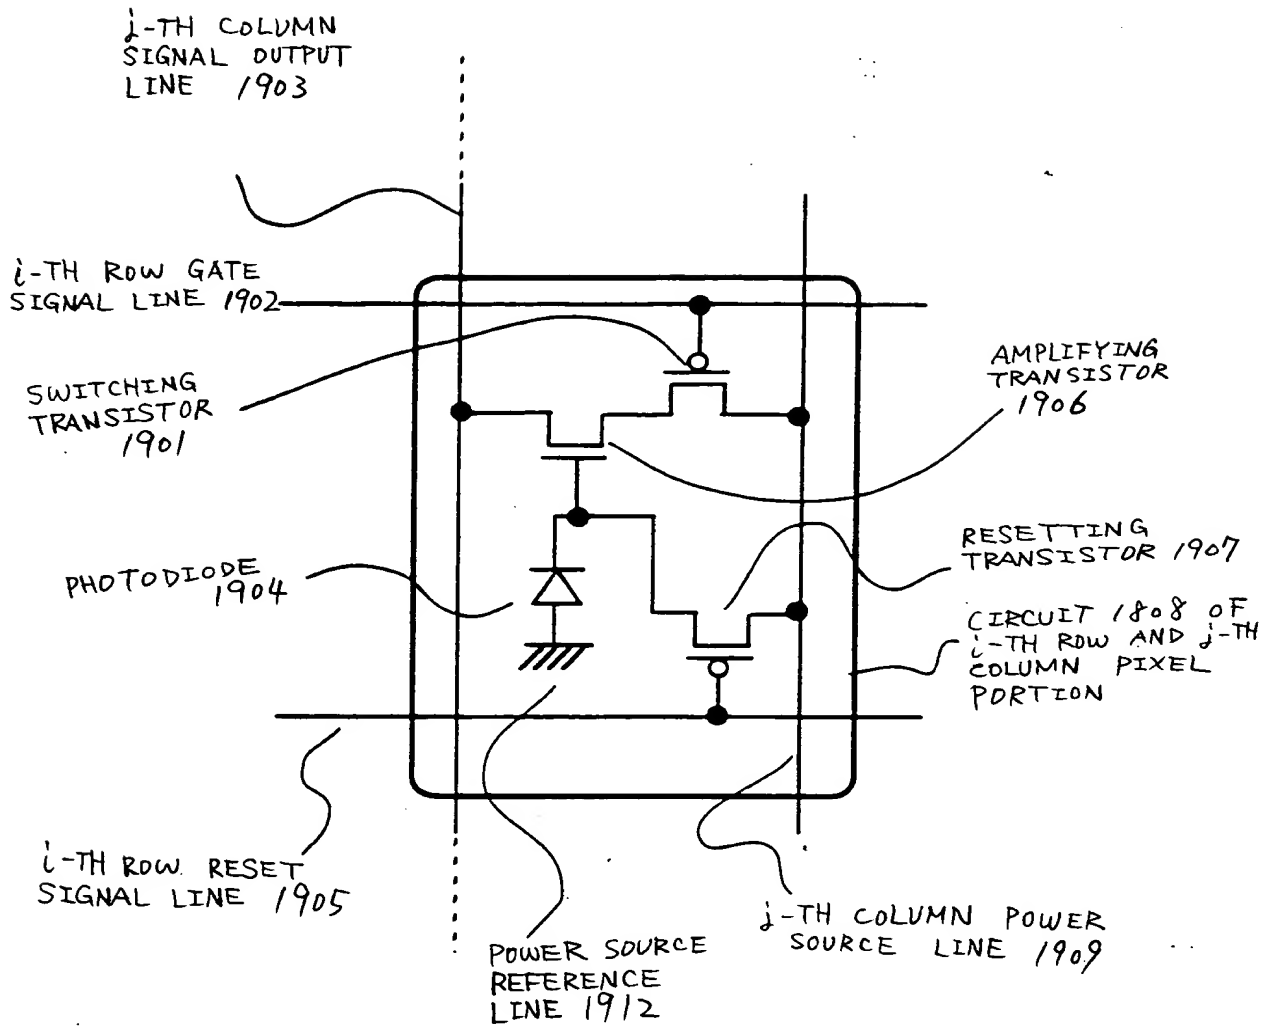 j-TH COLUMN
SIGNAL OUTPUT
LINE 1903
i-TH ROW GATE
SIGNAL LINE 1902
SWITCHING
TRANSISTOR
1901
AMPLIFYING
TRANSISTOR
1906
PHOTODIODE
1904
RESETTING
TRANSISTOR 1907
CIRCUIT 1808 OF
i-TH ROW AND j-TH
COLUMN PIXEL
PORTION
i-TH ROW RESET
SIGNAL LINE 1905
POWER SOURCE
REFERENCE
LINE 1912
j-TH COLUMN POWER
SOURCE LINE 1909